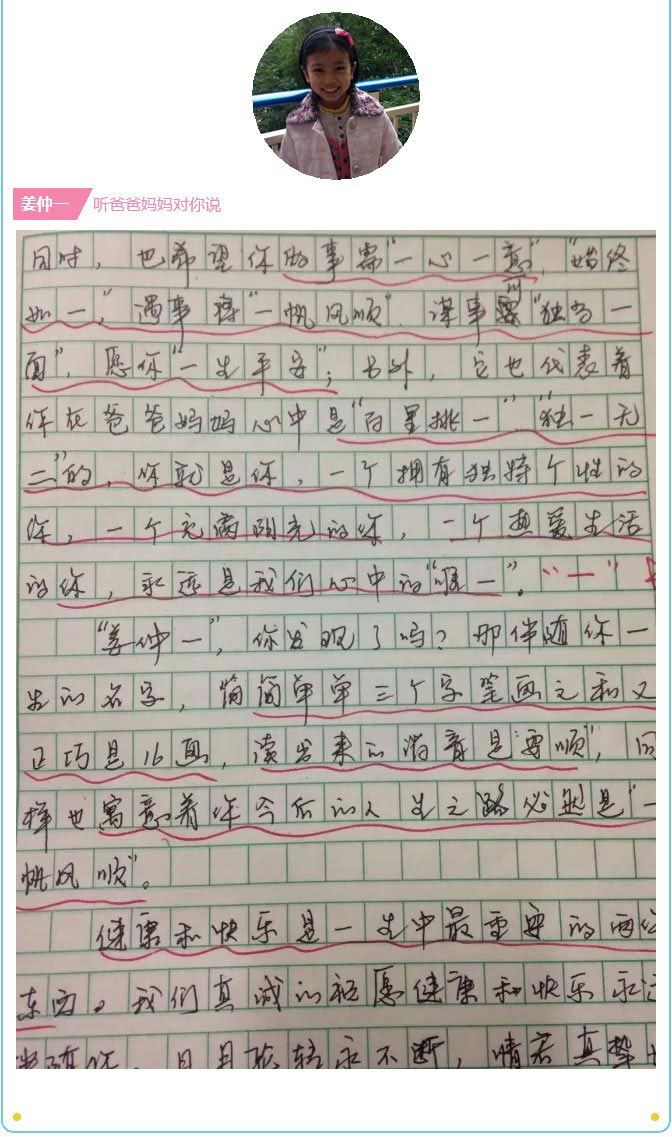 姜仲一 听爸爸妈妈对你说
同时，也希望你做事需“一心一意”，“始终
如一”，遇事得“一帆风顺”，谋事可“独当一
面”，愿你“一生平安”；另外，它也代表着
你在爸爸妈妈心中是“百里挑一”“独一无
二”的，你就是你，一个拥有独特个性的
你，一个充满阳光的你，一个热爱生活
的你，永远是我们心中的“唯一”。“一”
“姜仲一”，你发现了吗？那伴随你一
生的名字，简简单单三个字笔画之和又
正巧是16画，读出来的谐音是“要顺”，同
样也寓意着你今后的人生之路必然是“一
帆风顺”。
健康和快乐是一生中最重要的两
东西。我们真诚的祝愿健康和快乐永
伴随你，日月轮转永不断，情若真挚